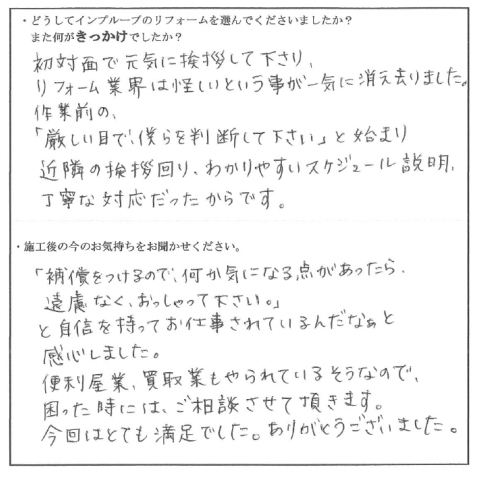 ・どうしてインプルーブのリフォームを選んでくださいましたか?
また何がきっかけでしたか?
初対面で元気に挨拶して下さり、
リフォーム業界は怪しいという事が一気に消え去りました。
作業前の、
「厳しい目で、僕らを判断して下さい」と始まり
近隣の挨拶回り、わかりやすいスケジュール説明、
丁寧な対応だったからです。
・施工後の今のお気持ちをお聞かせください。
「補償をつけるので、何か気になる点があったら、
遠慮なく、おっしゃって下さい。」
と自信を持ってお仕事されているんだなぁと
感心しました。
便利屋業、買取業もやられているそうなので、
困った時には、ご相談させて頂きます。
今回はとても満足でした。ありがとうございました。